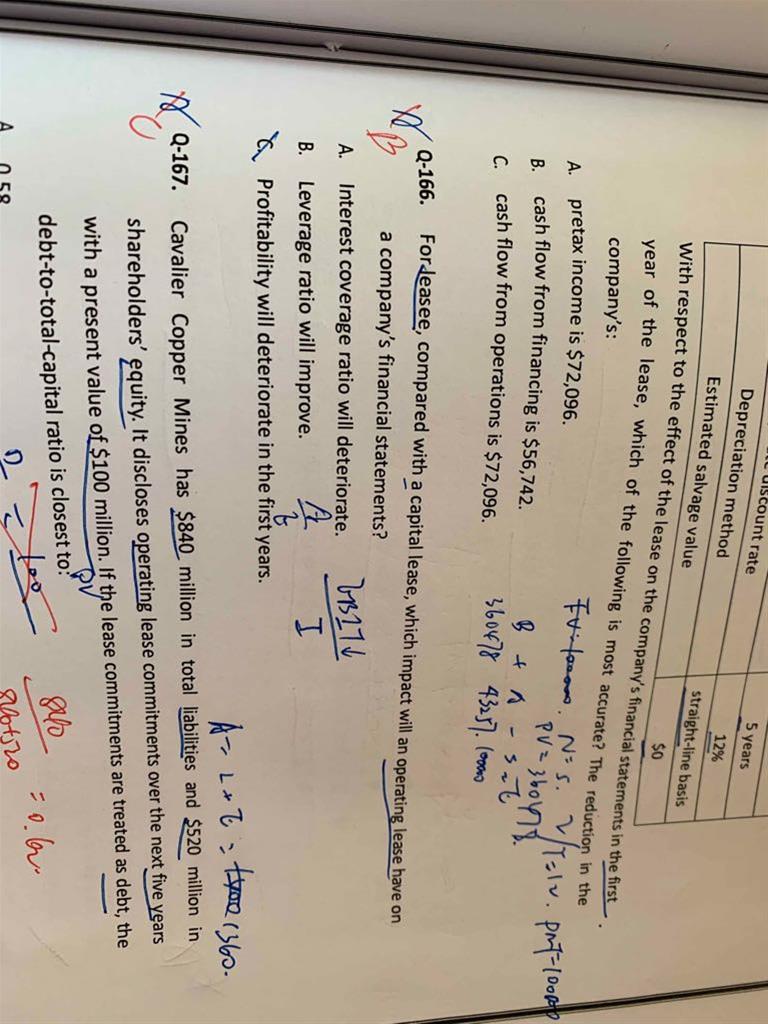 discount rate
5 years
Depreciation method
12%
Estimated salvage value
straight-line basis
$0
With respect to the effect of the lease on the company's financial statements in the first
year of the lease, which of the following is most accurate? The reduction in the
company's:
A. pretax income is $72,096.
B. cash flow from financing is $56,742.
C. cash flow from operations is $72,096.
N=5.
I/Y=12.
PMT=100000
PV=360478.
B + A - S = E
360478 43257. 100000
B
Q-166. For leasee, compared with a capital lease, which impact will an operating lease have on
a company's financial statements?
A. Interest coverage ratio will deteriorate.
B. Leverage ratio will improve.
C. Profitability will deteriorate in the first years.
A
E
EBIT↓
I
A = L + E = 1360.
C
Q-167. Cavalier Copper Mines has $840 million in total liabilities and $520 million in
shareholders' equity. It discloses operating lease commitments over the next five years
with a present value of $100 million. If the lease commitments are treated as debt, the
PV
debt-to-total-capital ratio is closest to:
A 0.58
D
=
100
840
840+520